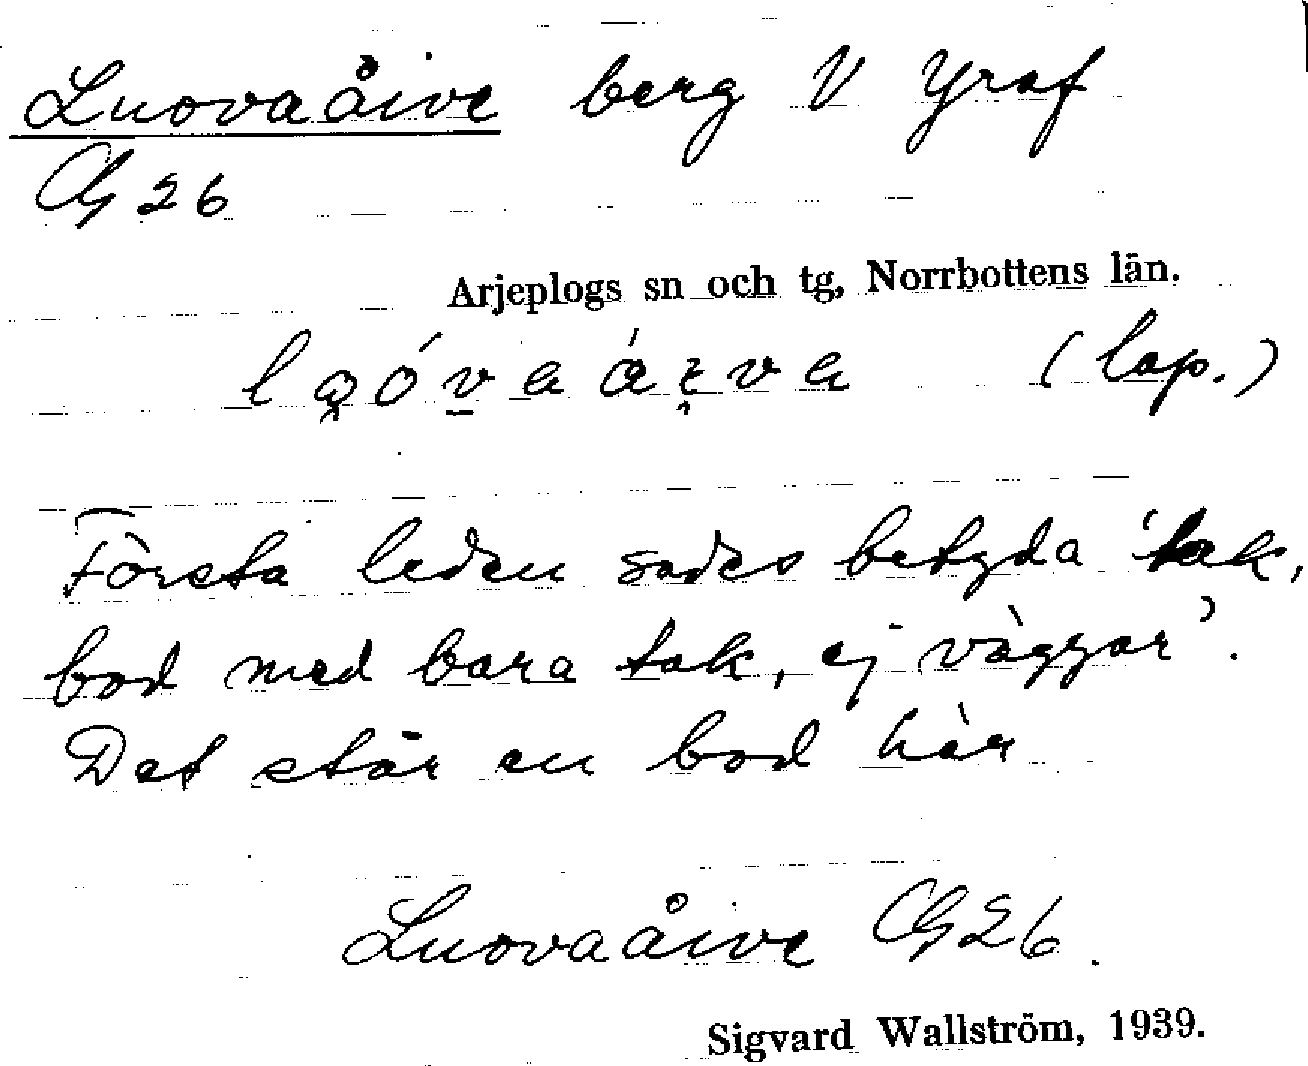 Luovaåive berg V Graf
G 26
Arjeplogs sn och tg, Norrbottens län.
(lap.)
Första leden sades betyda 'tak,
bod med bara tak, ej väggar'.
Det står en bod här
Luovaåive G26.
Sigvard Wallström, 1939.